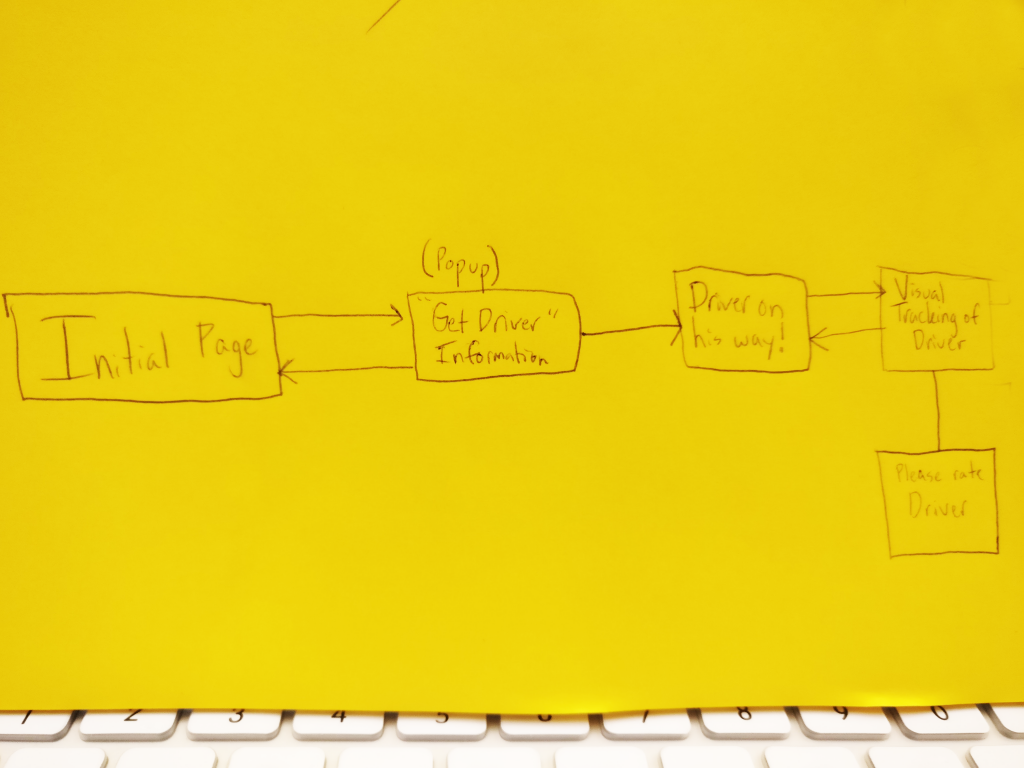 (Popup)
Initial Page
"Get Driver"
Information
Driver on
his way!
Visual
Tracking of
Driver
Please rate
Driver
1 2 3 4 5 6 7 8 9 0